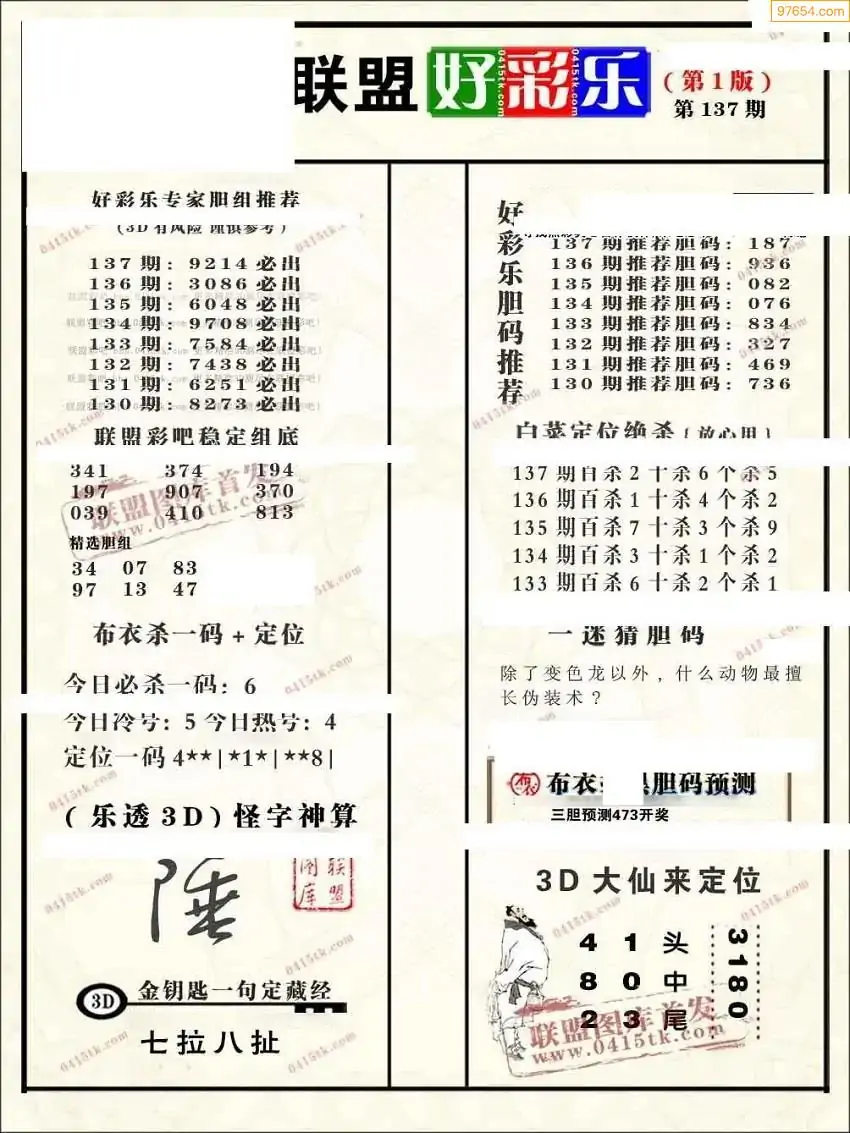 97654.com
联盟 好彩乐
(第1版)
第137期
好彩乐专家胆组推荐
(3D有风险 谨慎参考)
137期: 9214必出
136期: 3086必出
135期: 6048必出
134期: 9708必出
133期: 7584必出
132期: 7438必出
131期: 6251必出
130期: 8273必出
联盟彩吧稳定组底
341 374 194
197 907 370
039 410 813
联盟图库首发
www.0415tk.com
精选胆组
34 07 83
97 13 47
布衣杀一码+定位
今日必杀一码: 6
今日冷号: 5 今日热号: 4
定位一码4**|*1*|**8|
(乐透3D)怪字神算
联盟
图库
3D 金钥匙一句定藏经
七拉八扯
好彩乐胆码推荐
137期推荐胆码: 187
136期推荐胆码: 936
135期推荐胆码: 082
134期推荐胆码: 076
133期推荐胆码: 834
132期推荐胆码: 327
131期推荐胆码: 469
130期推荐胆码: 736
白菜定位绝杀(放心用)
137期百杀2十杀6个杀5
136期百杀1十杀4个杀2
135期百杀7十杀3个杀9
134期百杀3十杀1个杀2
133期百杀6十杀2个杀1
一迷猜胆码
除了变色龙以外, 什么动物最擅
长伪装术?
布衣 胆码预测
三胆预测473开奖
3D大仙来定位
4 1 头
8 0 中
2 3 尾
3180
联盟图库首发
www.0415tk.com